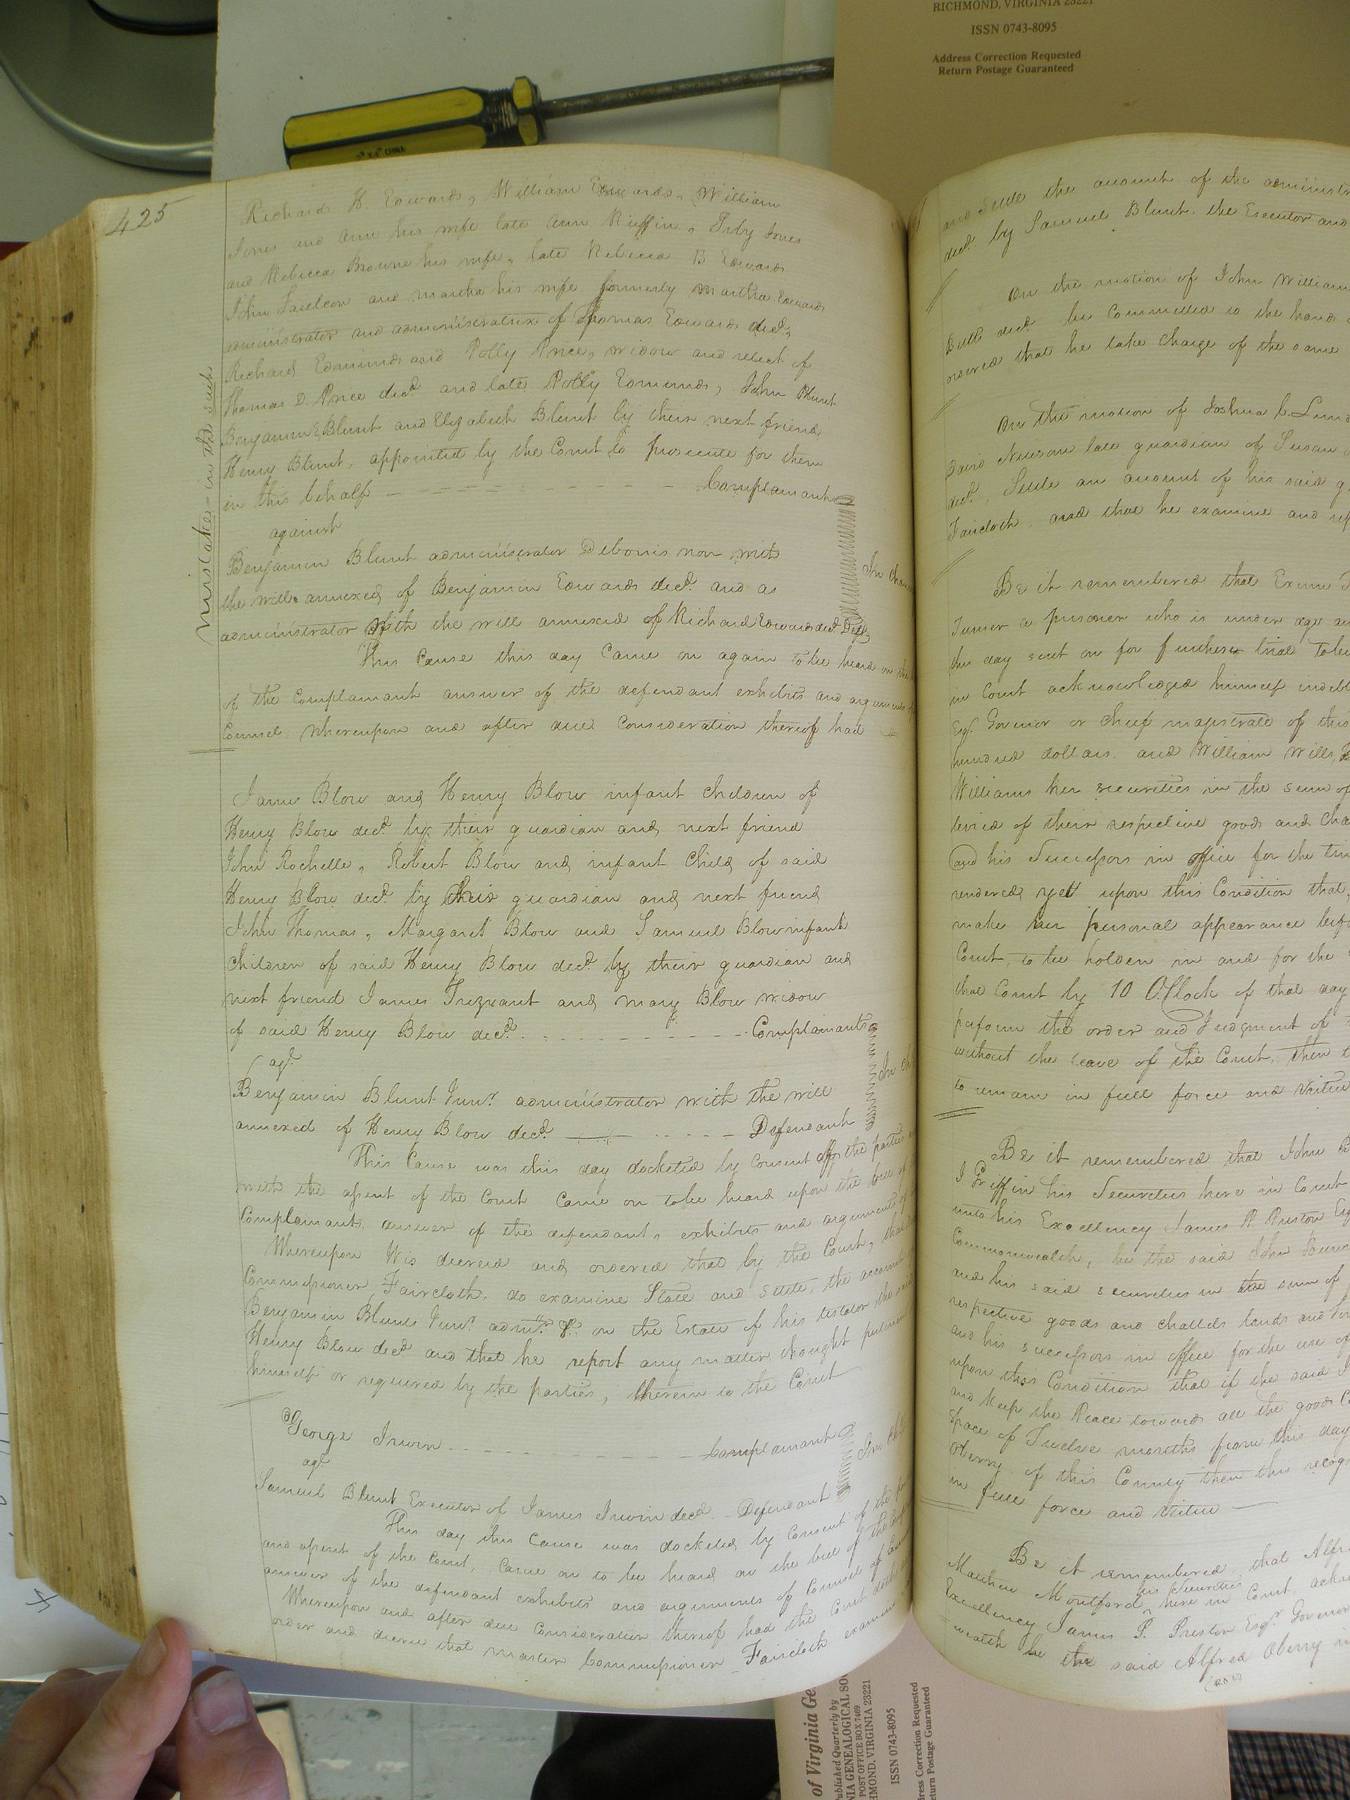 RICHMOND, VIRGINIA 23221
ISSN 0743-8095
Address Correction Requested
Return Postage Guaranteed
425
Richard H Edwards, William Edwards, William
Jones and Ann his wife late Ann Ruffin,
and Rebecca Browne his wife, late Rebecca B Edwards
John and Martha his wife formerly Martha Edwards
administrator and administratrix of Thomas Edwards decd,
Richard Edmunds and Polly Price, widow and relect of
Thomas D. Price decd and late Polly Edmunds, John Blunt
Benjamin E Blunt and Elizabeth Blunt by their next friend
Henry Blunt, appointed by the Court to prosecute for them
in this behalf Complainants
against
Benjamin Blunt administrator Debonis non with
the will annexed of Benjamin Edwards decd and as
administrator with the will annexed of Richard Edwards decd Deft
mistake in the suit
This Cause this day Came on again to be heard on the
of the Complainant answer of the defendant exhibits and arguments
Counsel whereupon and after due Consideration thereof had
James Blow and Henry Blow infant children of
Henry Blow decd by their guardian and next friend
John Rochelle, Robert Blow and infant child of said
Henry Blow decd by their guardian and next friend
John Thomas, Margaret Blow and Samuel Blow infant
children of said Henry Blow decd by their guardian and
next friend James Trezvant and Mary Blow widow
of said Henry Blow decd. Complainants
agt
Benjamin Blunt Junr. administrator with the will
annexed of Henry Blow decd Defendant
This Cause was this day docketed by Consent of the parties
with the assent of the Court Came on to be heard upon the bill of
Complainant, answer of the defendant, exhibits and arguments of
Whereupon Tis decreed and ordered that by the Court, that
Commissioner Faircloth, do examine State and settle, the account
Benjamin Blunt Junr. admr. &c on the Estate of his testator the said
Henry Blow decd and that he report any matter thought pertinent
himself or required by the parties, therein to the Court
George Irwin Complainant
agt
Samuel Blunt Executor of James Irwin decd Defendant
This day this Cause was docketed by Consent of the
and assent of the Court, Came on to be heard on the bill of the
answer of the defendant exhibits and arguments of Counsel
Whereupon and after due Consideration thereof had the Court doth
order and decree that master Commissioner Faircloth examine
and settle the account of the administr
decd. by Samuel Blunt, the Executor and
On the motion of John William
decd be Committed to the hands
ordered that he take Charge of the same
On the motion of Joshua
David Newsom late guardian of Susan
decd, Settle an account of his said
Faircloth, and that he examine and
Be it remembered that
Turner a prisoner who is under age
this day sent on for further trial
in Court acknowledged himself
Esqr. Governor or chief magistrate of this
hundred dollars and William Wills
Williams her securities in the sum of
levied of their respective goods and
and his Successors in office for the
rendered yet upon this Condition that,
make her personal appearance
Court, to be holden in and for the
that Court by 10 OClock of that day
perform the order and Judgment of
without the leave of the Court, then
to remain in full force and virtue
Be it remembered that John
Griffin his Securities here in Court
unto his Excellency James P. Preston
Commonwealth, be the said John
and his said securities in the sum of
respective goods and chattels lands and
and his successors in office for the use of
upon this Condition that if the said
and keep the Peace towards all the good
Space of Twelve months from this day
Oberry of this County then this
in full force and virtue
Be it remembered, that
Matthew Montford his Securities here in Court,
Excellency James P. Preston Esqr. Governor
wealth be the said Alfred Oberry
of Virginia Ge
Published Quarterly by
INIA GENEALOGICAL SO
POST OFFICE BOX 7469
HMOND, VIRGINIA 23221
ISSN 0743-8095
ress Correction Requested
turn Postage Guaranteed